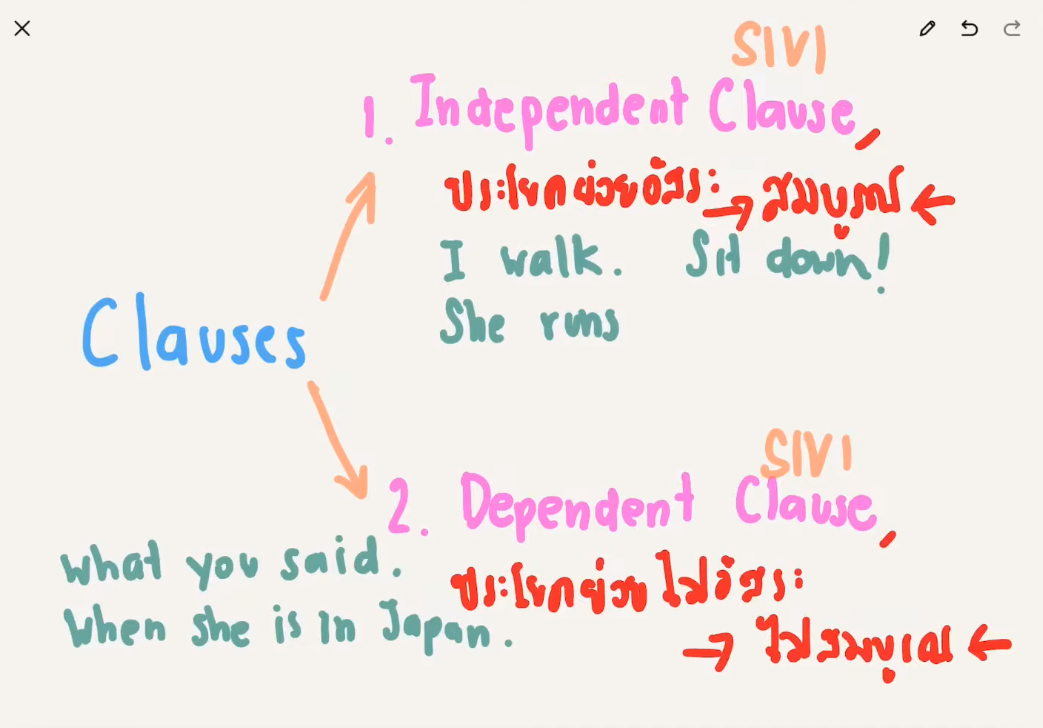 S1V1
1. Independent Clause,
ประโยคย่อยอิสระ → สมบูรณ์ ←
I walk. Sit down!
She runs
Clauses
S1V1
2. Dependent Clause,
ประโยคย่อย ไม่อิสระ
→ ไม่สมบูรณ์ ←
What you said.
When she is in Japan.